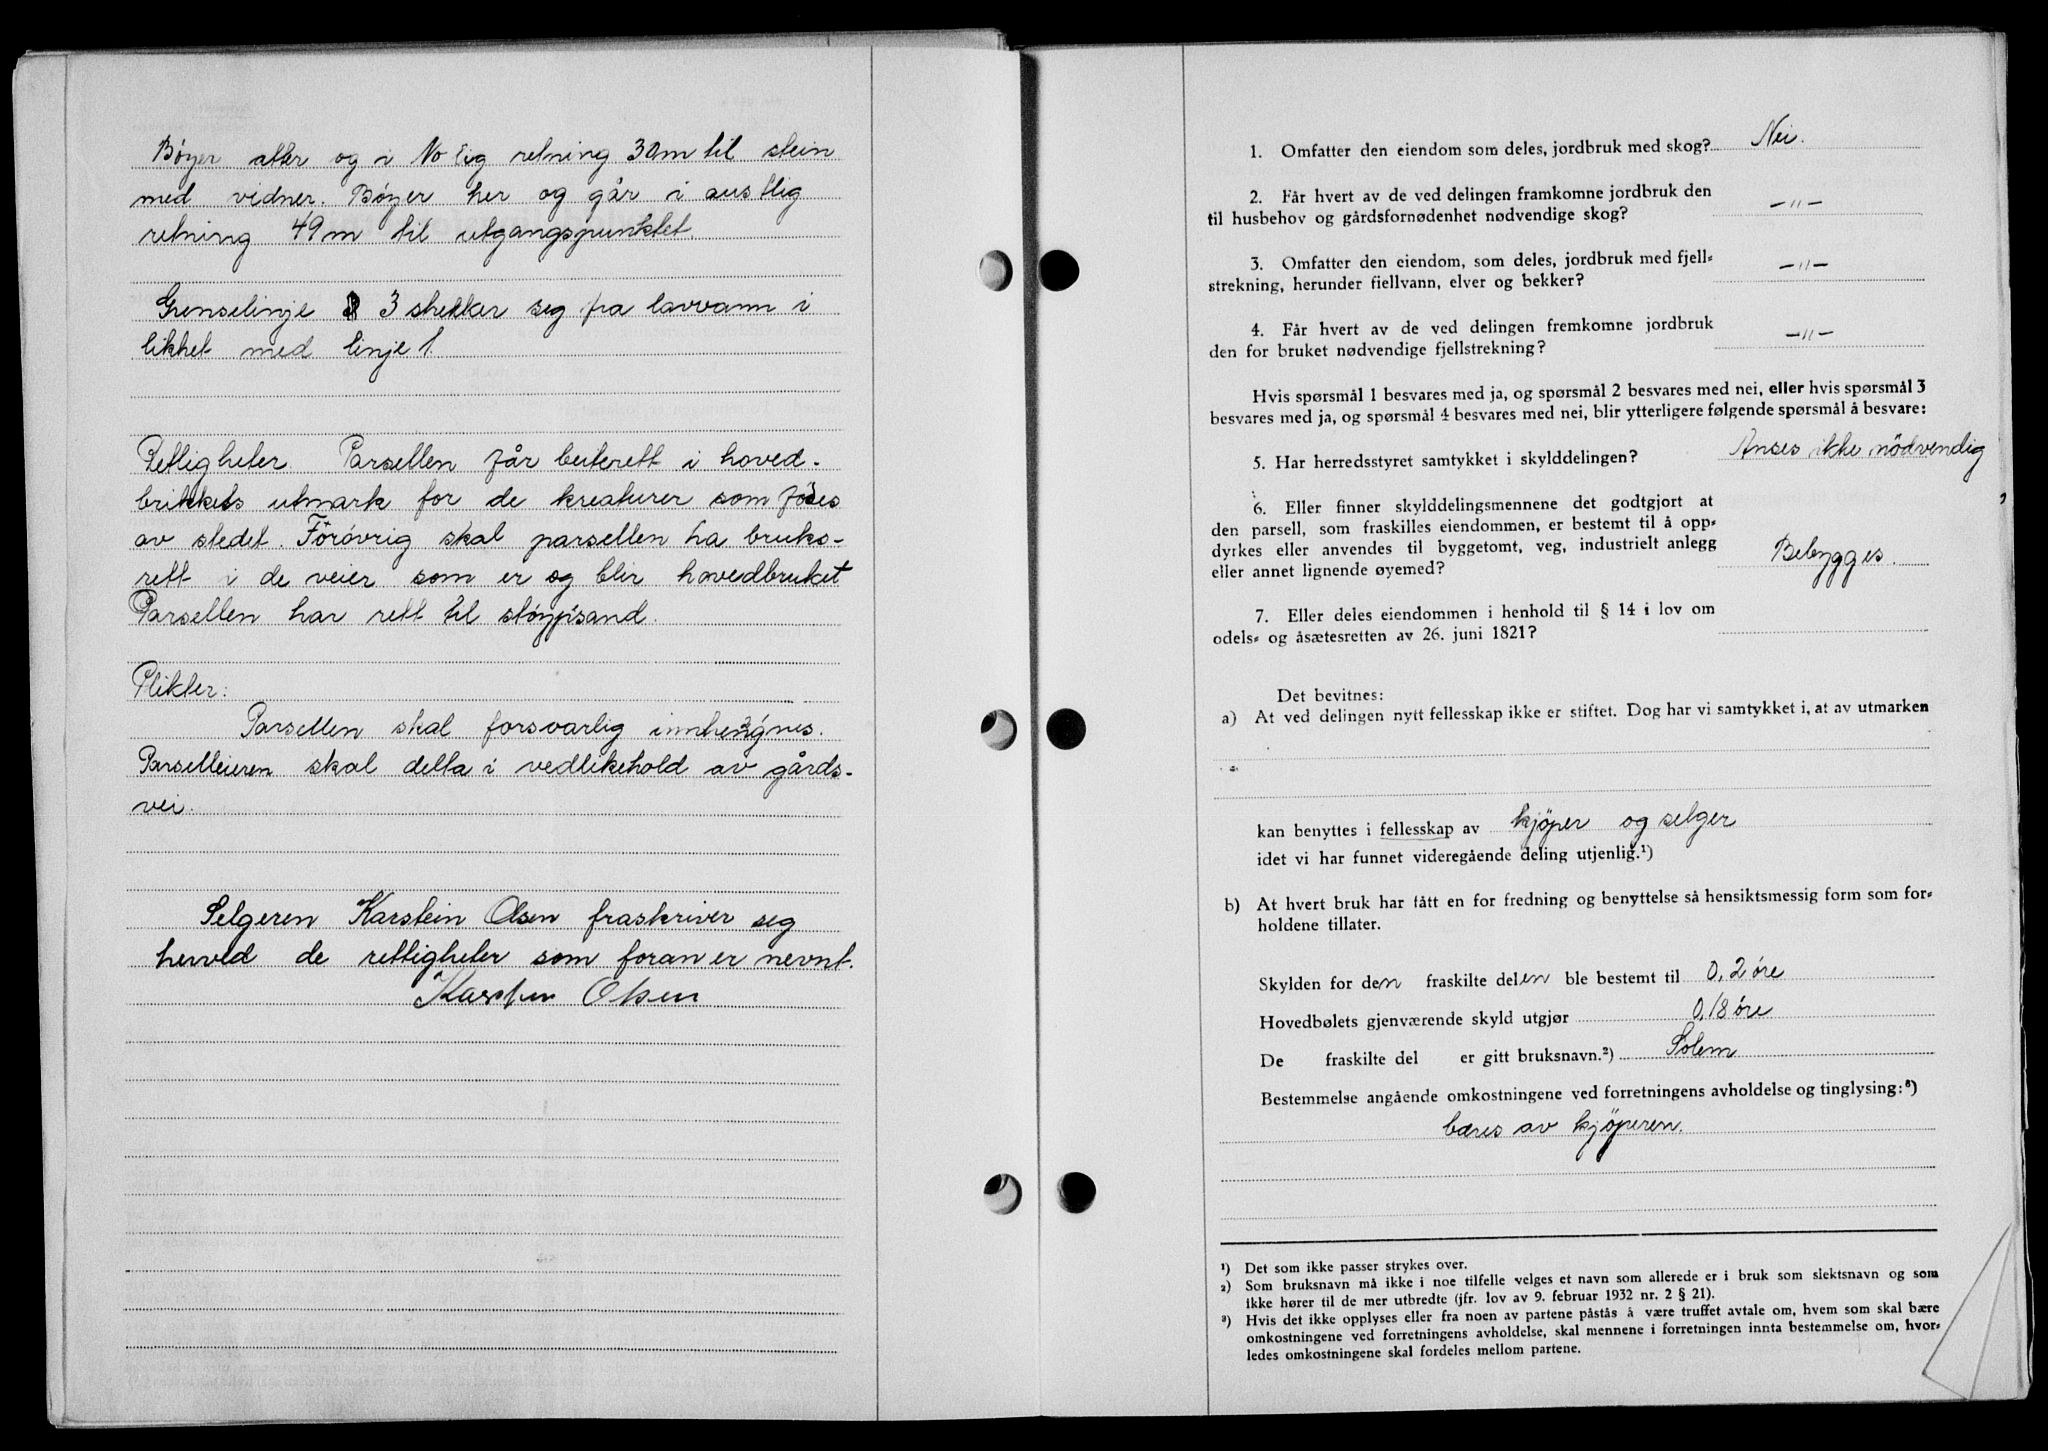 Bøyer atter og i No lig retning 30m til stein
med vidner. Bøyer her og går i austlig
retning 49m til utgangspunktet.
Grenselinje 3 strekker seg fra lavvann i
likhet med linje 1.
Rettigheter. Parsellen får beiterett i hoved-
brukets utmark for de kreaturer som födes
av stedet. Forøvrig skal parsellen ha bruks-
rett i de veier som er og blir hovedbruket
Parsellen har rett til støypsand.
Plikter:
Parsellen skal forsvarlig innhegnes.
Parselleieren skal delta i vedlikehold av gårds-
vei.
Selgeren Karstein Olsen fraskriver seg
herved de rettigheter som foran er nevnt.
Karsten Olsen
1. Omfatter den eiendom som deles, jordbruk med skog? Nei.
2. Får hvert av de ved delingen framkomne jordbruk den
til husbehov og gårdsfornødenhet nødvendige skog? —"—
3. Omfatter den eiendom, som deles, jordbruk med fjell-
strekning, herunder fiellvann, elver og bekker? —"—
4. Får hvert av de ved delingen fremkomne jordbruk
den for bruket nødvendige fjellstrekning? —"—
Hvis spørsmål 1 besvares med ja, og spørsmål 2 besvares med nei, eller hvis spørsmål 3
besvares med ja, og spørsmål 4 besvares med nei, blir ytterligere følgende spørsmål å besvare:
5. Har herredsstyret samtykket i skylddelingen? Anses ikke nödvendig
6. Eller finner skylddelingsmennene det godtgjort at
den parsell, som fraskilles eiendommen, er bestemt til å opp-
dyrkes eller anvendes til byggetomt, veg, industrielt anlegg
eller annet lignende øyemed? Bebygges.
7. Eller deles eiendommen i henhold til § 14 i lov om
odels- og åsætesretten av 26. juni 1821?
Det bevitnes:
a) At ved delingen nytt fellesskap ikke er stiftet. Dog har vi samtykket i, at av utmarken
kan benyttes i fellesskap av kjøper og selger
idet vi har funnet videregående deling utjenlig.¹)
b) At hvert bruk har fått en for fredning og benyttelse så hensiktsmessig form som for-
holdene tillater.
Skylden for den fraskilte delen ble bestemt til 0,2 øre
Hovedbølets gjenværende skyld utgjør 0,18 øre
De fraskilte del er gitt bruksnavn.²) Solem
Bestemmelse angående omkostningene ved forretningens avholdelse og tinglysing:³)
bæres av kjøperen.
¹) Det som ikke passer strykes over.
²) Som bruksnavn må ikke i noe tilfelle velges et navn som allerede er i bruk som slektsnavn og som
ikke hører til de mer utbredte (jfr. lov av 9. februar 1932 nr. 2 § 21).
³) Hvis det ikke opplyses eller fra noen av partene påstås å være truffet avtale om, hvem som skal bære
omkostningene ved forretningens avholdelse, skal mennene i forretningen innta bestemmelse om, hvor-
ledes omkostningene skal fordeles mellom partene.